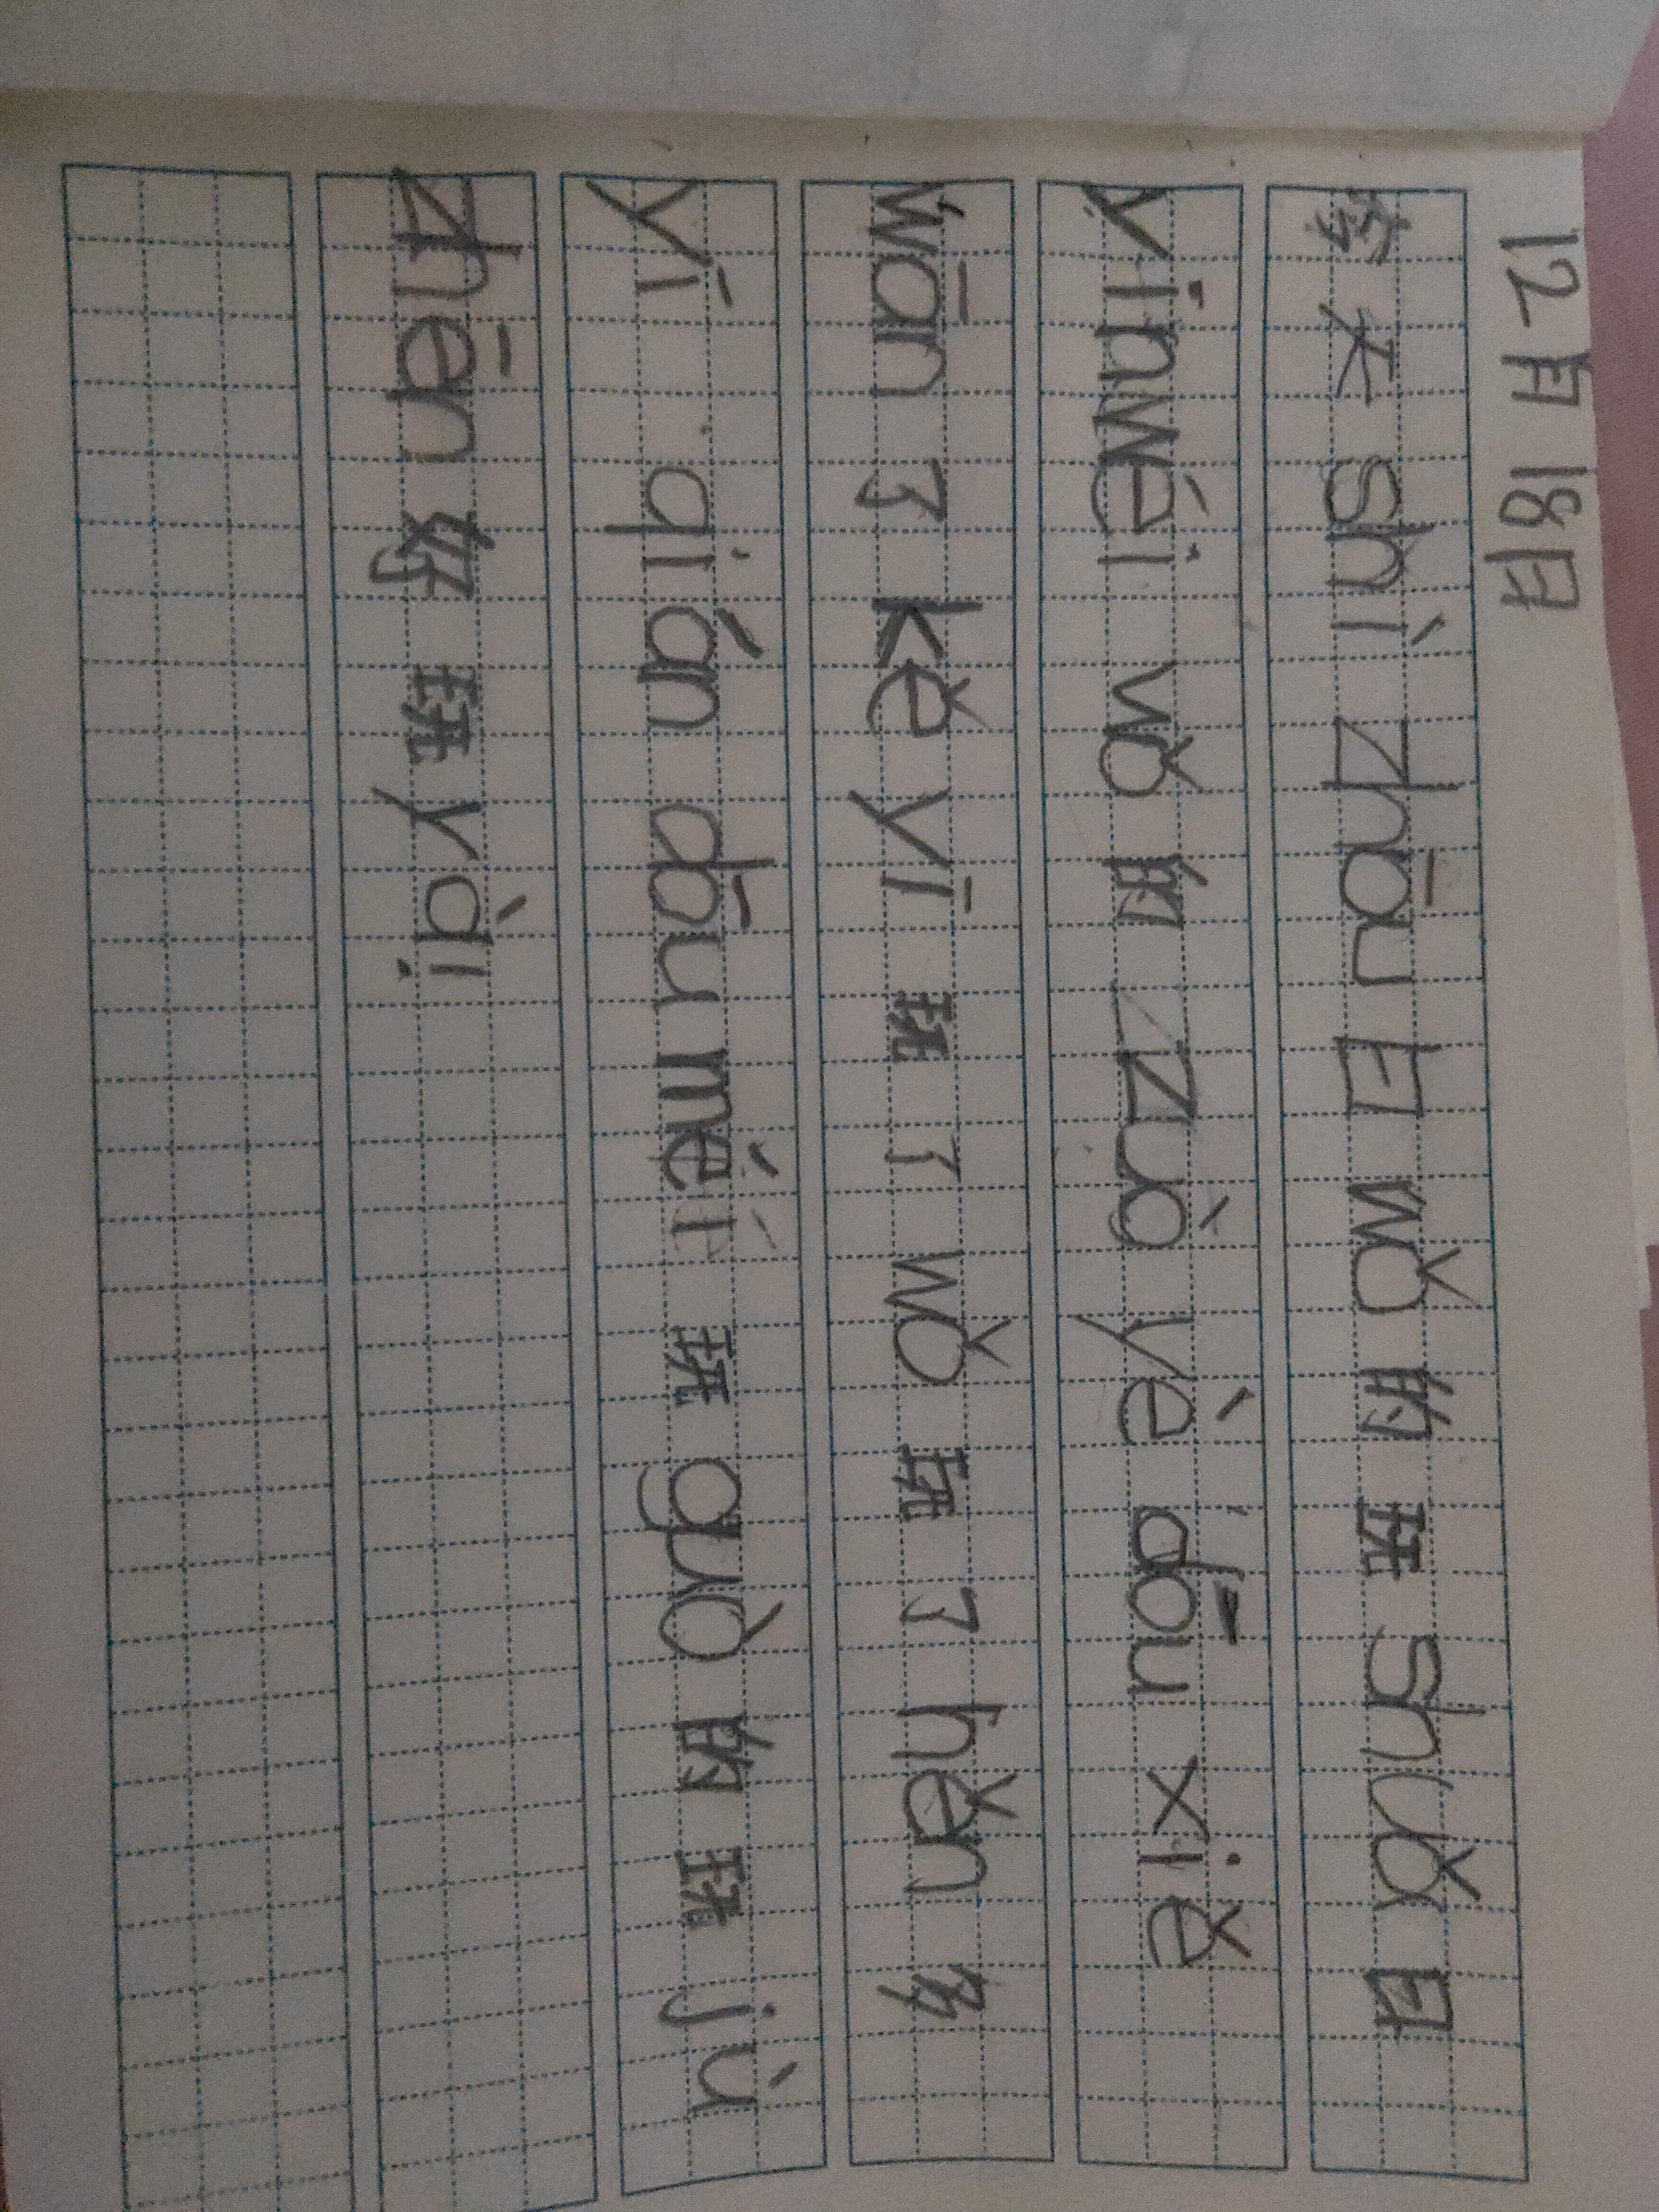 12月18日
今天 shì zhōu 日 wǒ 的 玩 shuǎ 日
yinwéi wǒ 的 zuò yè dōu xiě
wān 了 kě yī 玩 了 wǒ 玩 了 hěn 多
yī qián dōu méi 玩 guò 的 玩 jù
zhēn 好 玩 yà!